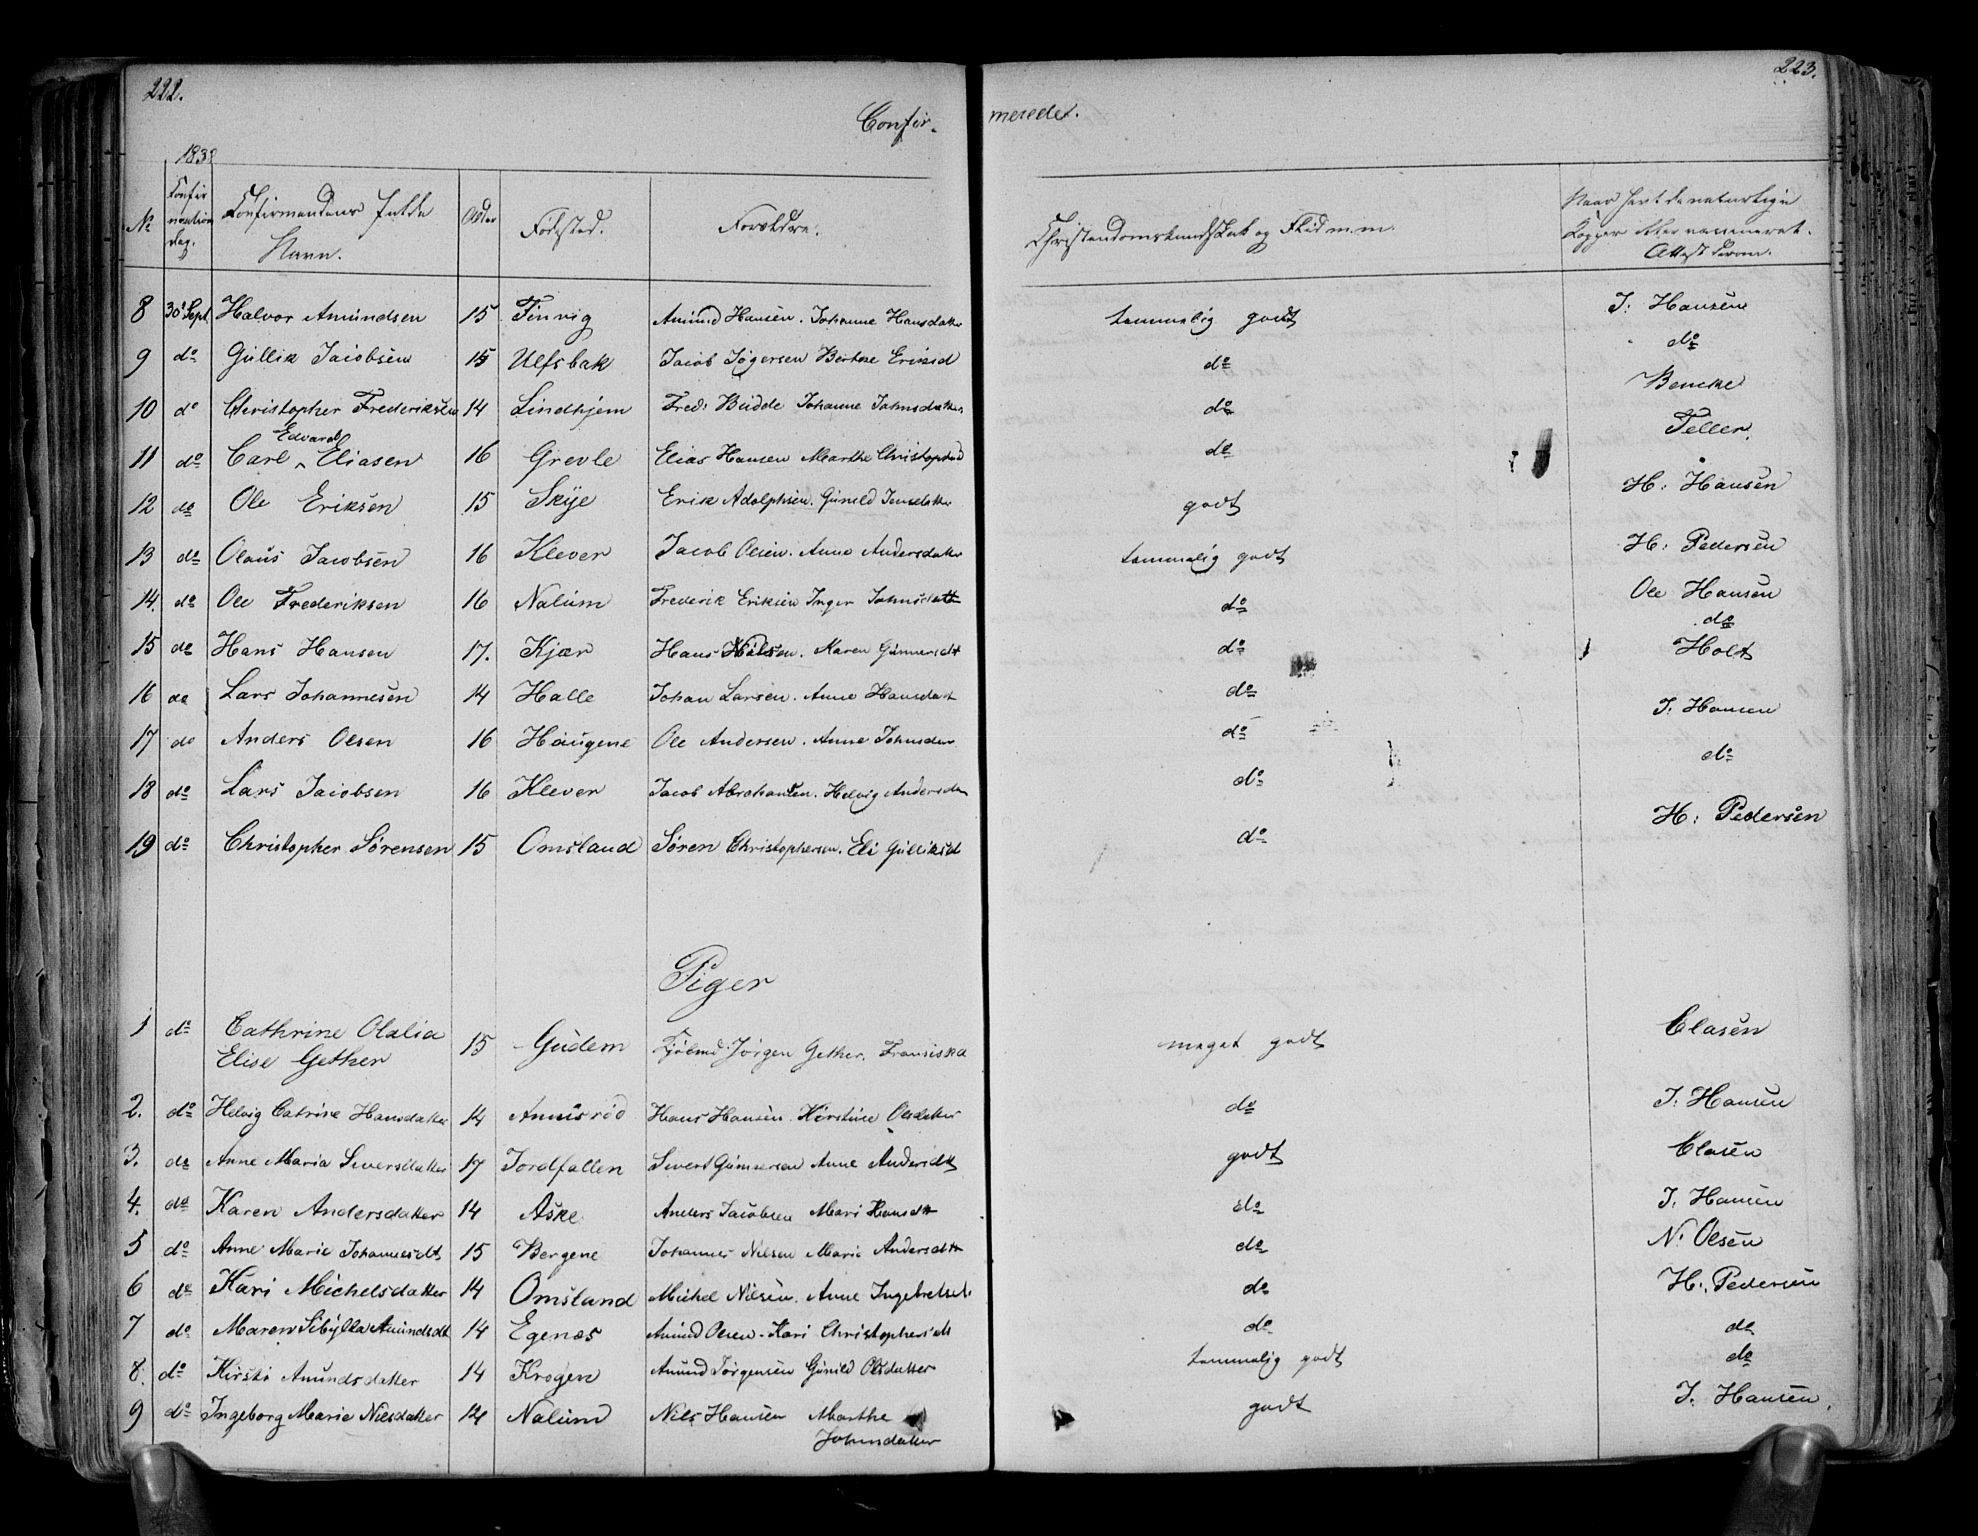 222.
223.
Confir- merede.
1838
No Confirmations Dag. Confirmandens fulde Navn. Alder Fødested. Forældre. Christendomskundskab og Flid m.m. Naar havt de naturlige Kopper eller vaccineret. Attest derom.
8 30 Sept Halvor Amundsen 15 Finvig Amund Hansen. Johanne Hansdatter temmelig godt J: Hansen
9 do Gullik Jacobsen 15 Ulfsbak Jacob Jögersen Berthe Eriksd do do
10 do Christopher Frederiksen 14 Lindhjem Fred: Budde Johanne Johnsdatter do Bencke
11 do Carl Edvard Eliasen 16 Grevle Elias Hansen Marthe Christophsd do Teller.
12 do Ole Eriksen 15 Skye Erik Adolphsen. Gunild Jensdatter godt H: Hansen
13 do Olaus Jacobsen 16 Klever Jacob Olsen. Anne Andersdatter temmelig godt H: Pedersen
14. do Ole Frederiksen 16 Nalum Frederik Eriksen Inger Johnsdatt do Ole Hansen
15 do Hans Hansen 17. Kjær Hans Nilsen. Karen Gunnersdt do do
16 do Lars Johannesen 14 Halle Johan Larsen. Anne Hansdatt do Holt
17 do Anders Olsen 16 Haugene Ole Andersen. Anne Johnsdr do J: Hansen
18 do Lars Jacobsen 16 Klever Jacob Abrahamsen. Helvig Andersdr do do
19 do Christopher Sørensen 15 Omsland Søren Christophersen. Eli Gulliksd do H: Pedersen
Piger
1 do Cathrine Olalia Elise Gether 15 Gudem Jørgen Gether. Fransiska meget godt Clasen
2. do Helvig Catrine Hansdatter 14 Annisrød Hans Hansen. Kirstine Olsdatter do J: Hansen
3. do Anne Maria Siversdatter 17 Jordfallen Sivert Gunnersen Anne Andersdt godt Clasen
4. do Karen Andersdatter 14 Aske Anders Jacobsen Mari Hansdtt do J: Hansen
5 do Anne Marie Johannesdt 15 Bergene Johannes Nilsen Marie Andersdtt do N: Olsen
6 do Kari Michelsdatter 14 Omsland Michel Nilsen. Anne Ingebretsdt. do H: Pedersen
7 do Maren Sibylla Amundsdt 14 Egenæs Amund Olsen. Kari Christophersdt do do
8. do Kirsti Amundsdatter 14 Krogen Amund Jørgensen Gunild Olsdatter temmelig godt do
9 do Ingeborg Marie Nilsdatter 14 Nalum Nils Hansen Marthe Johnsdatter godt J. Hansen.